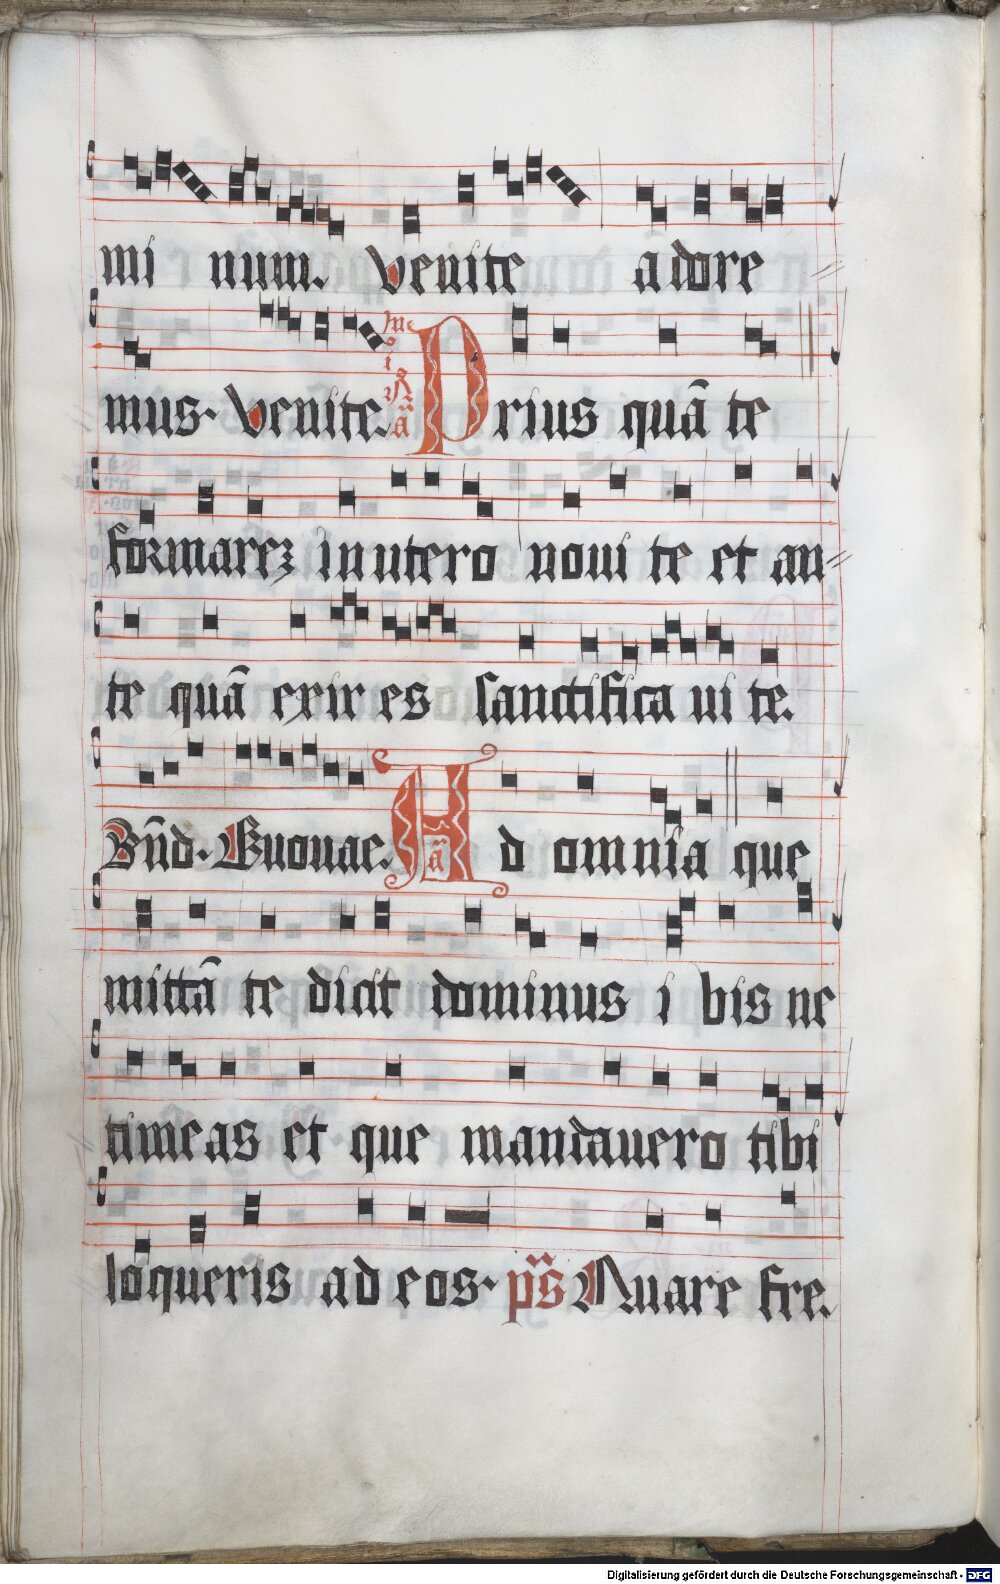 mi num. Venite adore //
mus. Venite. Prius quā te
formarez in utero noui te et an//
te quā exires sanctifica ui te.
Bn̄d. Euouae. ā Ad omnia que
mittā te dicit dominus i bis ne
timeas et que mandauero tibi
loqueris ad eos. ps Quare fre.
Digitalisierung gefördert durch die Deutsche Forschungsgemeinschaft - DFG